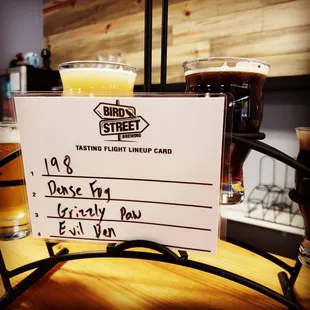 BIRD
STREET
BREWING
TASTING FLIGHT LINEUP CARD
1 198
2 Dense Fog
3 Grizzly Paw
4 Evil Den